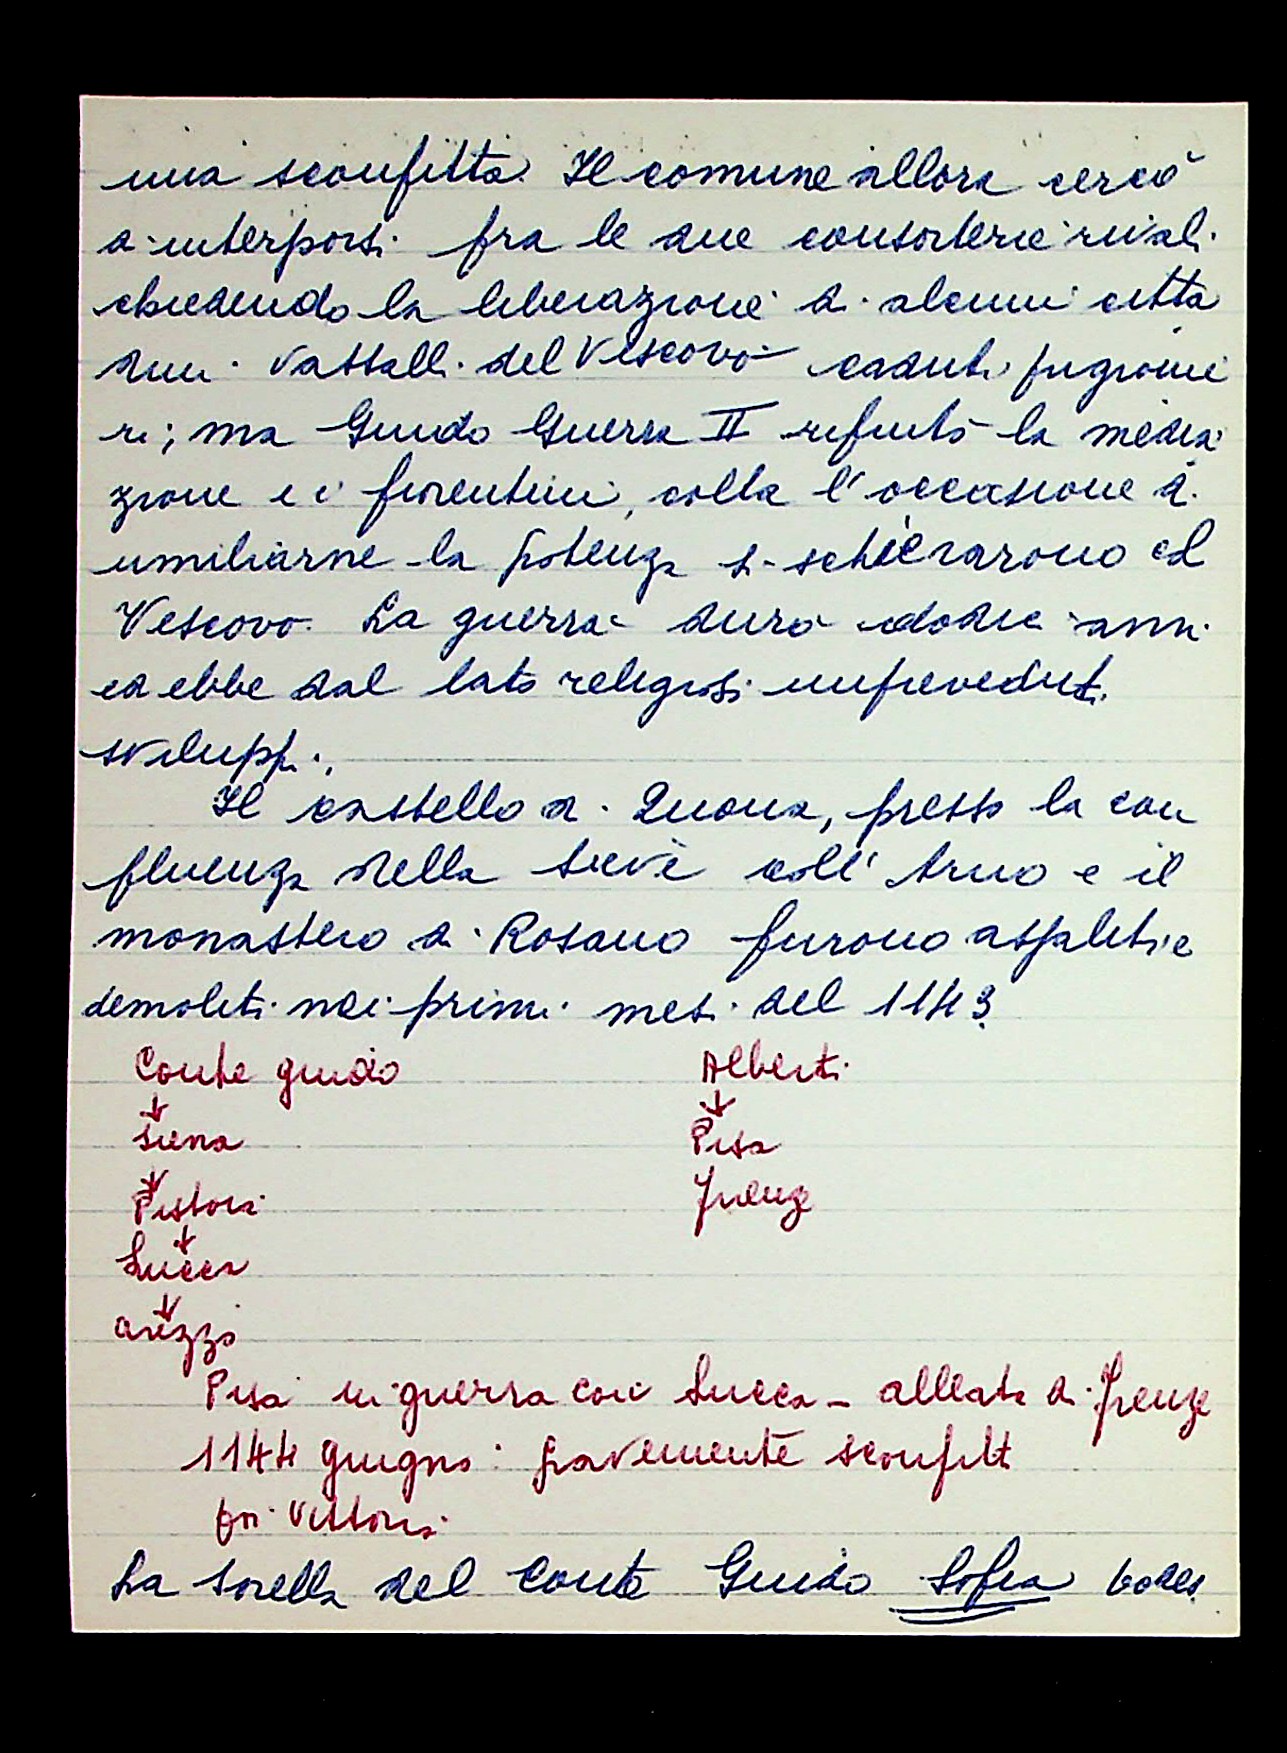 una sconfitta. Il comune allora cercò
d'interporsi fra le due consorterie rivali
chiedendo la liberazione di alcuni citta
dini vassalli del Vescovo caduti prigionie
ri; ma Guido Guerra II rifiutò la media
zione e i fiorentini, colta l'occasione di
umiliarne la potenza si schierarono col
Vescovo. La guerra durò dodici anni
ed ebbe dal lato religioso impreveduti
sviluppi.
Il castello di Quona, presso la con
fluenza della Sieve coll'Arno e il
monastero di Rosano furono assaliti e
demoliti nei primi mesi del 1143.
Conte Guido Alberti
↓ ↓
Siena Pisa
↓
Pistoia Firenze
↓
Lucca
↓
Arezzo
Pisa in guerra con Lucca - alleata di Firenze
1144 giugno: gravemente sconfitti
poi vittoria
La sorella del Conte Guido Sofia